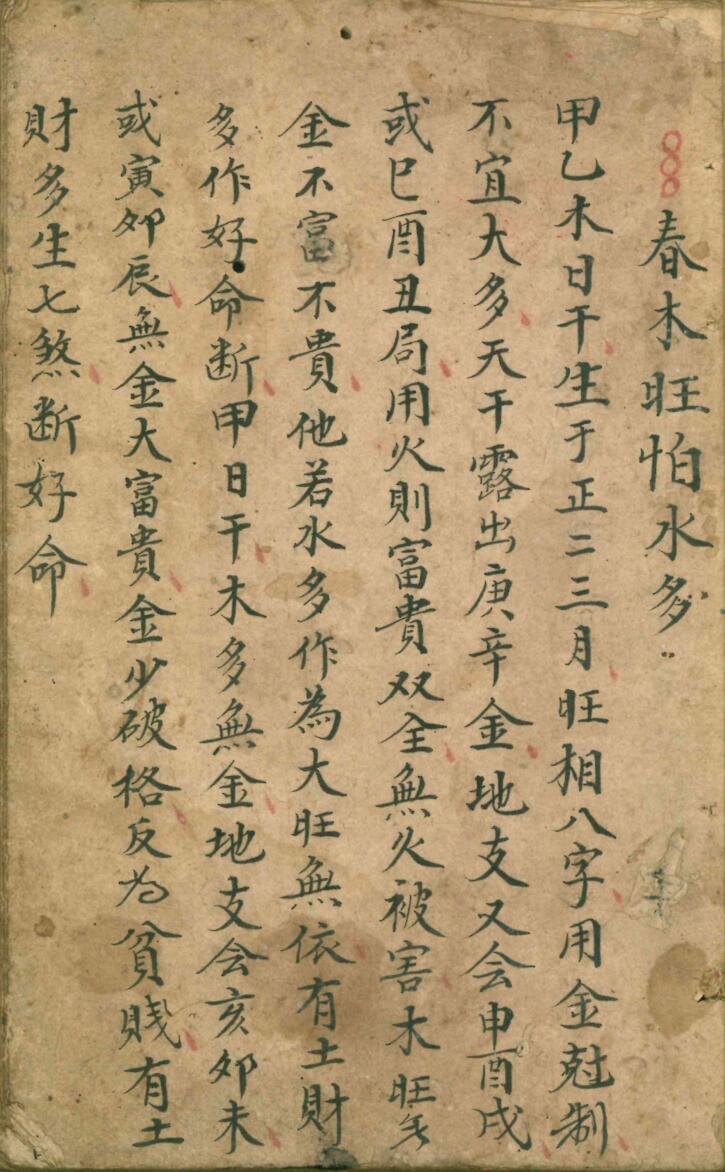 春木旺怕水多
甲乙木日干生于正二三月旺相八字用金尅制
不宜大多天干露出庚辛金地支又会申酉戌
或巳酉丑局用火則富貴双全無火被害木旺
金不富不貴他若水多作為大旺無依有土財
多作好命断甲日干木多無金地支会亥卯未
或寅卯辰無金大富貴金少破格反为貧賤有土
財多生七煞断好命